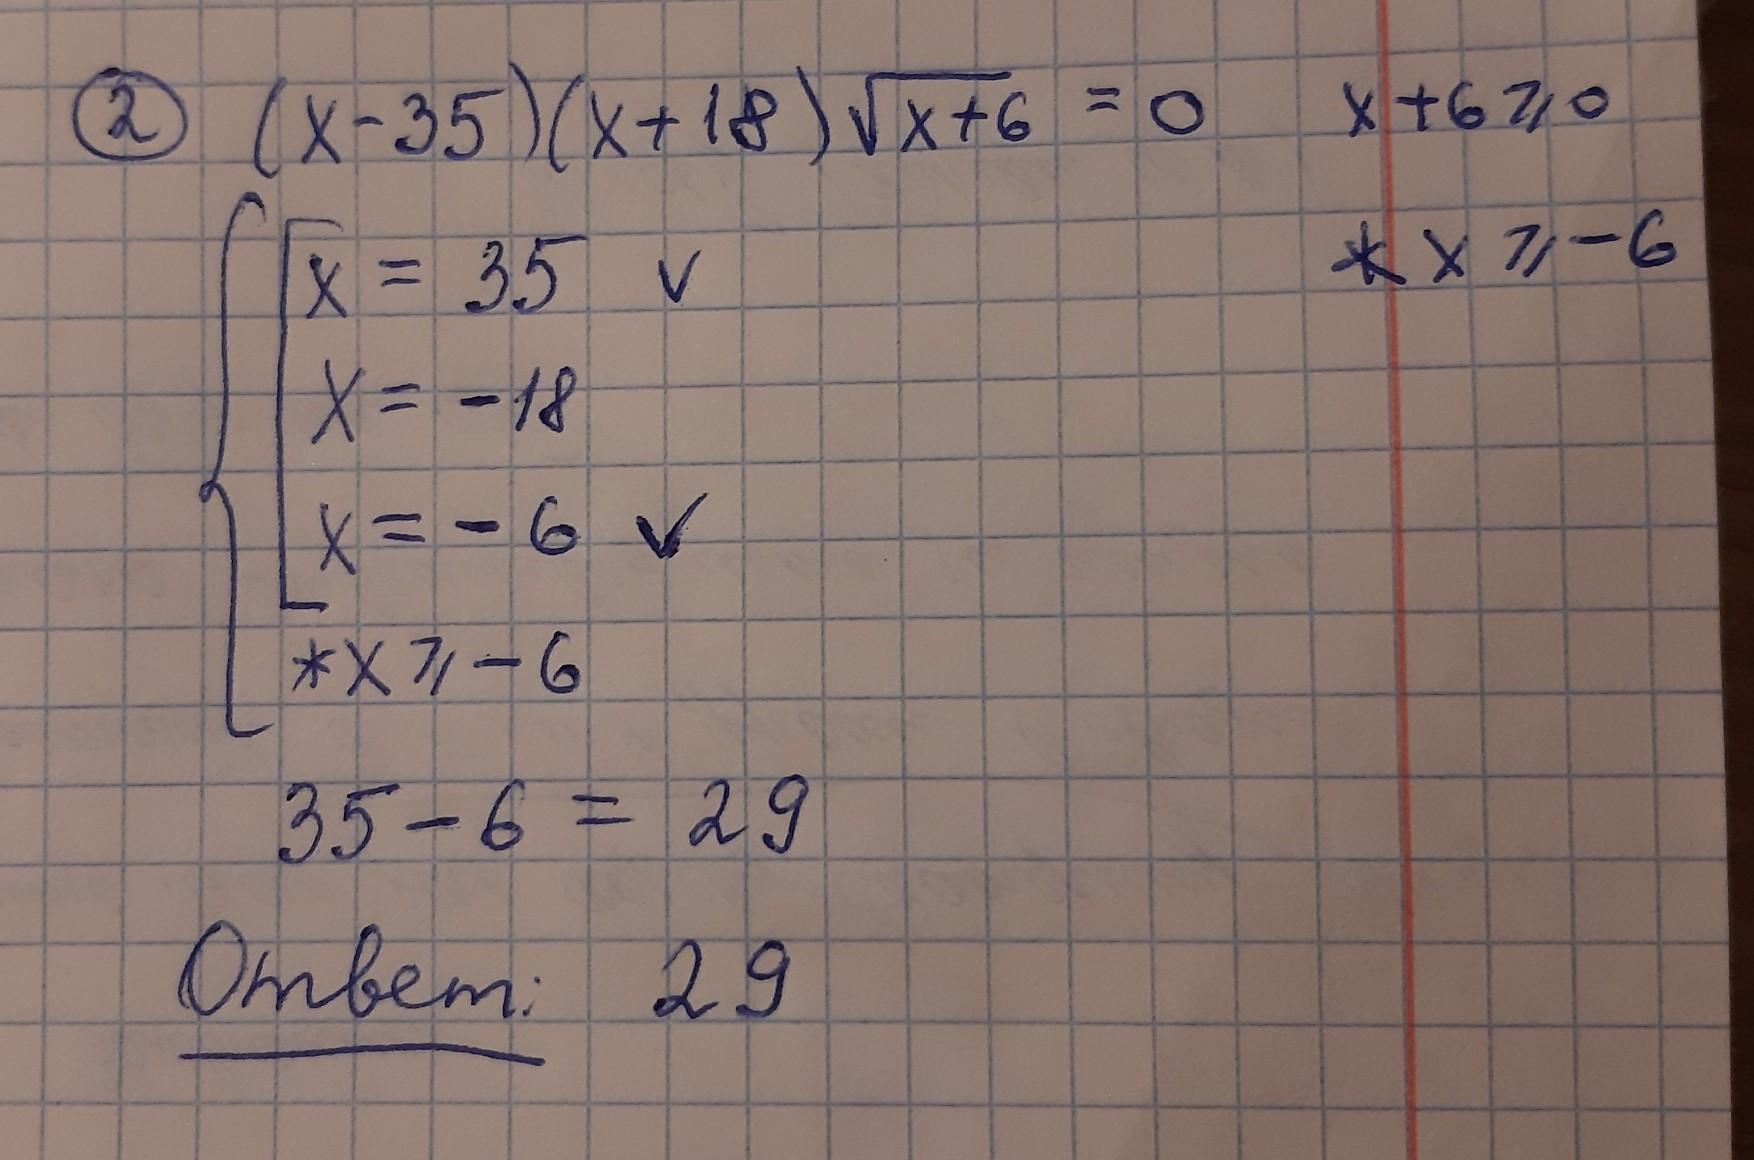 ② (x-35)(x+18)√(x+6) = 0 x+6⩾0
x = 35 ✓ * x ⩾ -6
x = -18
x = -6 ✓
*x ⩾ -6
35 - 6 = 29
Ответ: 29